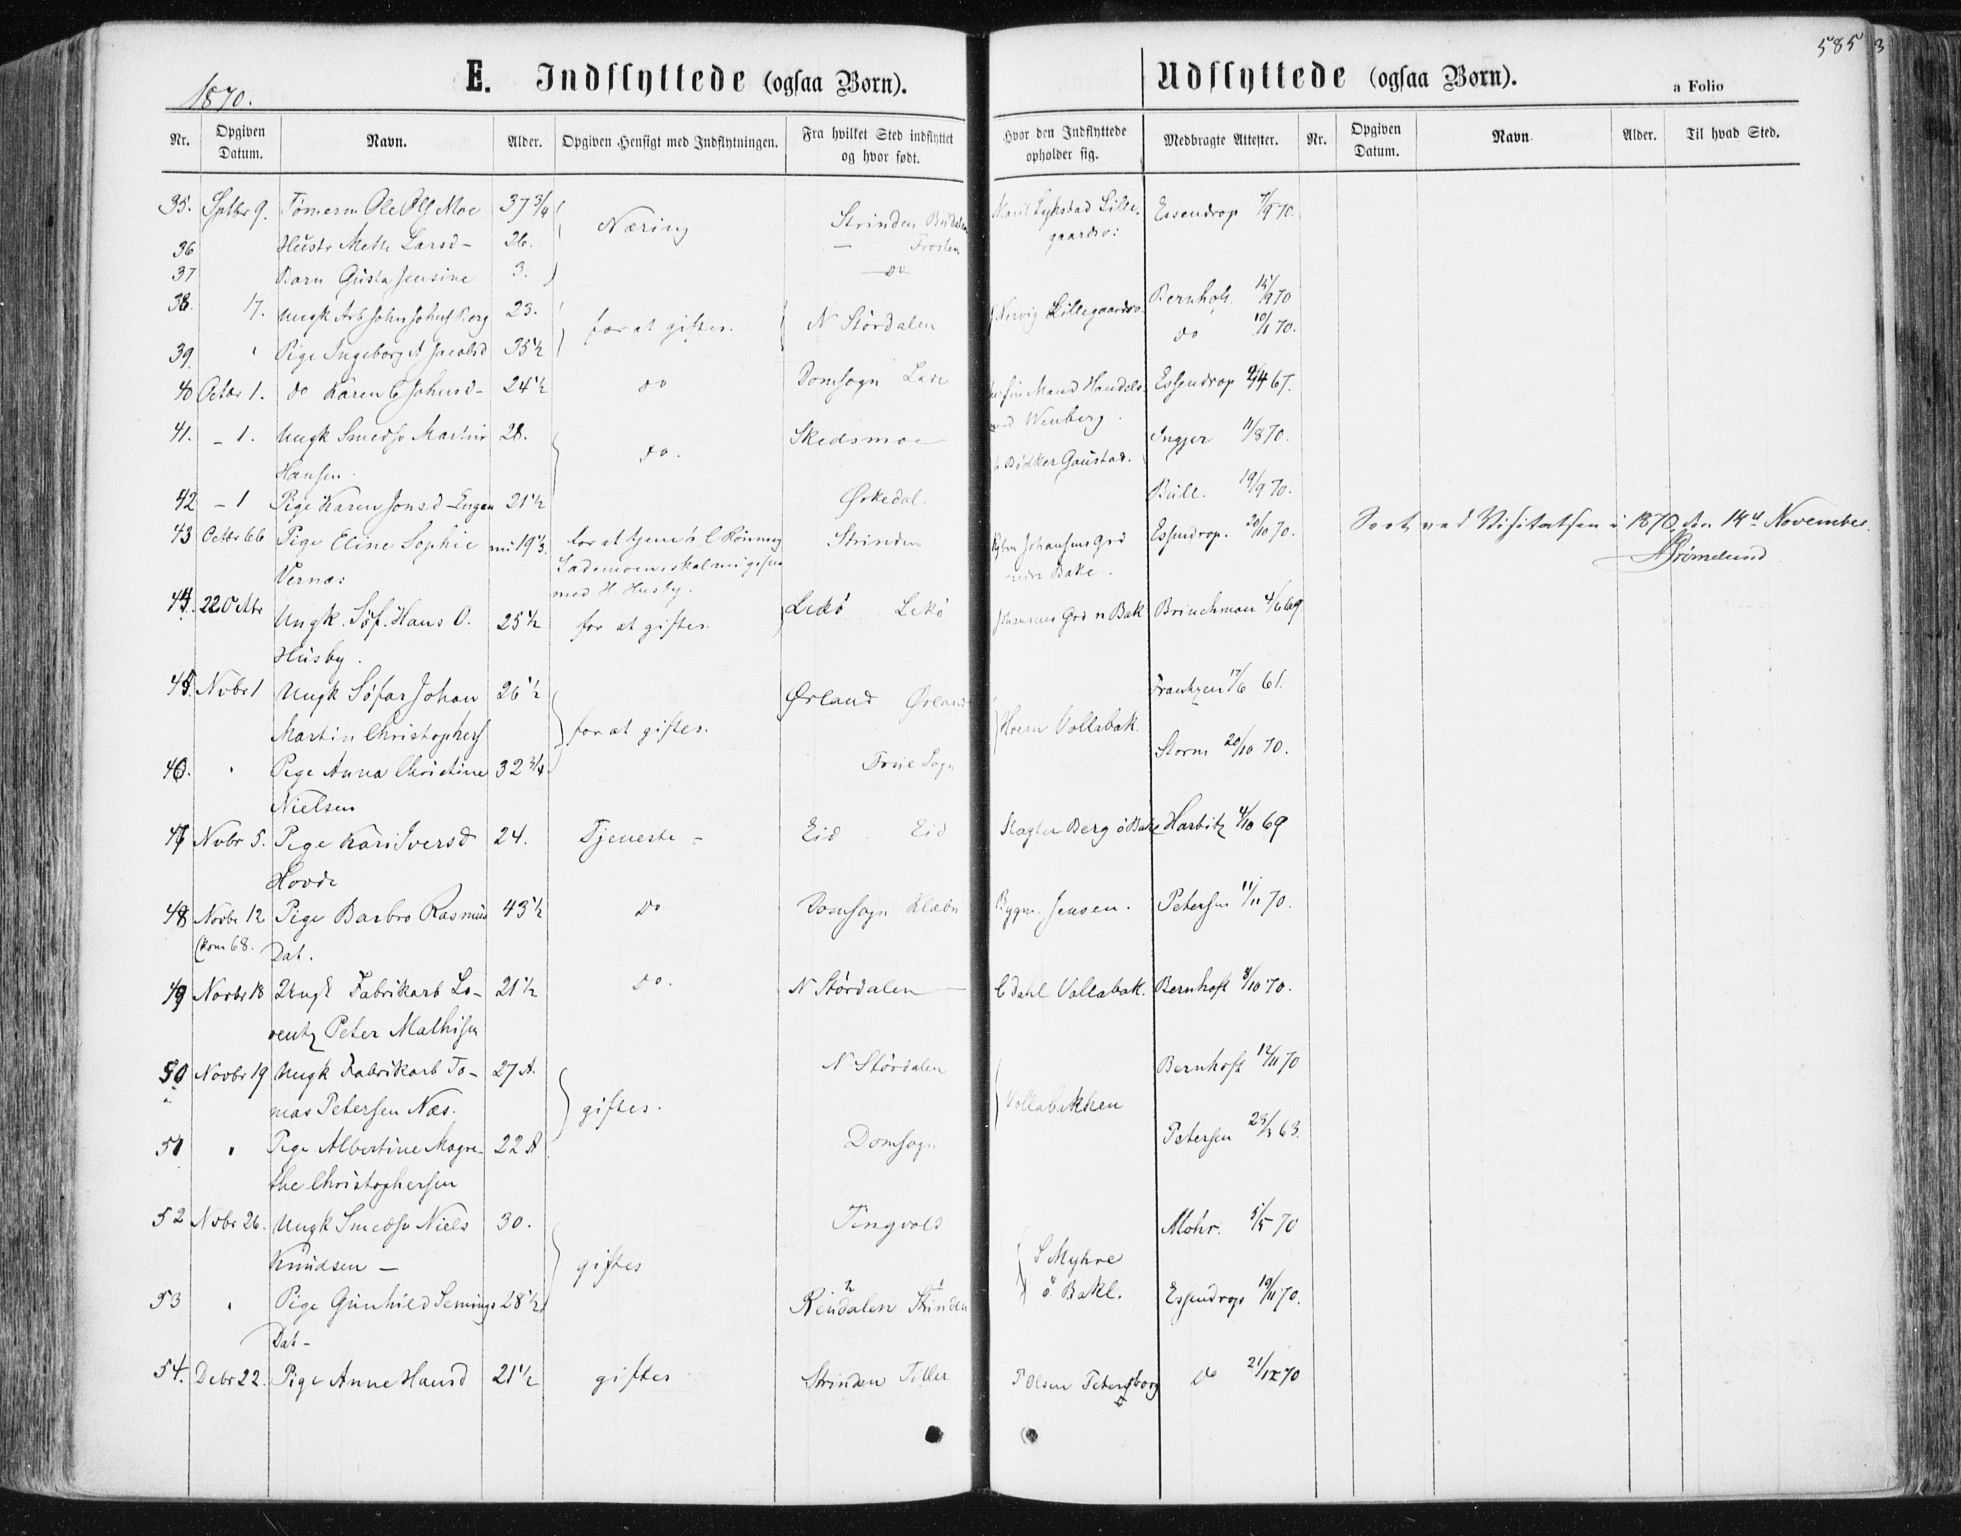 1870.
E. Indflyttede (ogsaa Børn).
Nr. Opgiven Datum. Navn. Alder. Opgiven Hensigt med Indflytningen. Fra hvilket Sted indflyttet og hvor født.
35. Septbr 9. Tømerm Ole Ols Moe 37 3/4 Næring Strinden
36 Hustr Mette Larsd- 26. — Frosten
37 Barn Gusta Jensine 3. Do
38. 17. Ungk Arb John Johns Berg 23. for at giftes. N Størdalen
39. " Pige Ingeborg A Jacobsd 35 1/2
40 Octbr 1. do Karen C Johnsd- 24 1/2 do Domsogn Lade
41. - 1. Ungk Smedsv Martin 28. do. Skedsmoe
Hansen.
42 - 1 Pige Karen Jonsd Engan 21 1/2 Ørkedal.
43 Octbr 66 Pige Eline Sophie nu 19 1/3. for at tjene ö C Rönning Strinden
Vernæs Lademoen skal nu giftes
med H Husby.
44. 22 Octbr Ungk. Söf. Hans O. 25 1/2 for at giftes. Lekö Lekö
Husby.
45. Nvbr 1 Ungk Söfar Johan 26 1/2 for at giftes. Ørland Ørland
Martin Christophers
46. " Pige Anna Christine 32 3/4. Frue Sogn
Nielsen
47 Nvbr 5. Pige Kari Iversd 24. Tjeneste - Eid Eid
Hovde
48 Novbr 12 Pige Barbro Rasmus 43 1/2 Do Domsogn Klæbu
(kom 68. Dat.
49 Novbr 18 Ungk Fabrikarb Lo- 21 1/2 Do. N Størdalen —
rentz Peter Mathisen
50 Novbr 19 Ungk Fabrikarb To- 27 A. giftes. N Stördalen
mas Petersen Næs.
51 " Pige Albertine Magre- 22 A Domsogn
the Christophersen
52 Nvbr 26. Ungk Smedsv Niels 30. giftes Tingvold
Knudsen —
53 " Pige Gunhild Semings 28 1/2 Reudalen Strinden
Dat-
54. Debr 22. Pige Anne Hansd 21 1/2 giftes Strinden Tiller
585
3
Udflyttede (ogsaa Børn).
a Folio
Hvor den Indflyttede opholder sig. Medbragte Attester. Nr. Opgiven Datum. Navn. Alder. Til hvad Sted.
Lille- Essendrop 7/9 70.
gaardsv:
Nervig Lillegaardsv. Bernhoft. 15/9 70
do 10/1 70.
Mand Handels- Essendrop 67.
Wenberg. Ingjer 11/8 70.
Bödker Gaustad. Bull. 19/9 70.
Johansens Grd Essendrop. 20/10 70.
Bakl.
Seet ved Visitatsen i 1870 den 14d November.
Johansens Grd n Bak Brinchman 4/6 69
Hoem Vollabak. Frantzen 17/6 61.
Storm 20/10 70.
Slagter Berg ö Bakl Harbitz 4/10 69
Bygm. Jensen. Petersen 11/11 70.
C Dahl Vollabak. Bernhoft 8/10 70.
Vollabakken Bernhoft 12/11 70
Petersen 63.
S Myhre Mohr. 5/5 70
ö. Bakl. Essendrop 19/11 70.
P Olsen Petersborg Do 21/12 70